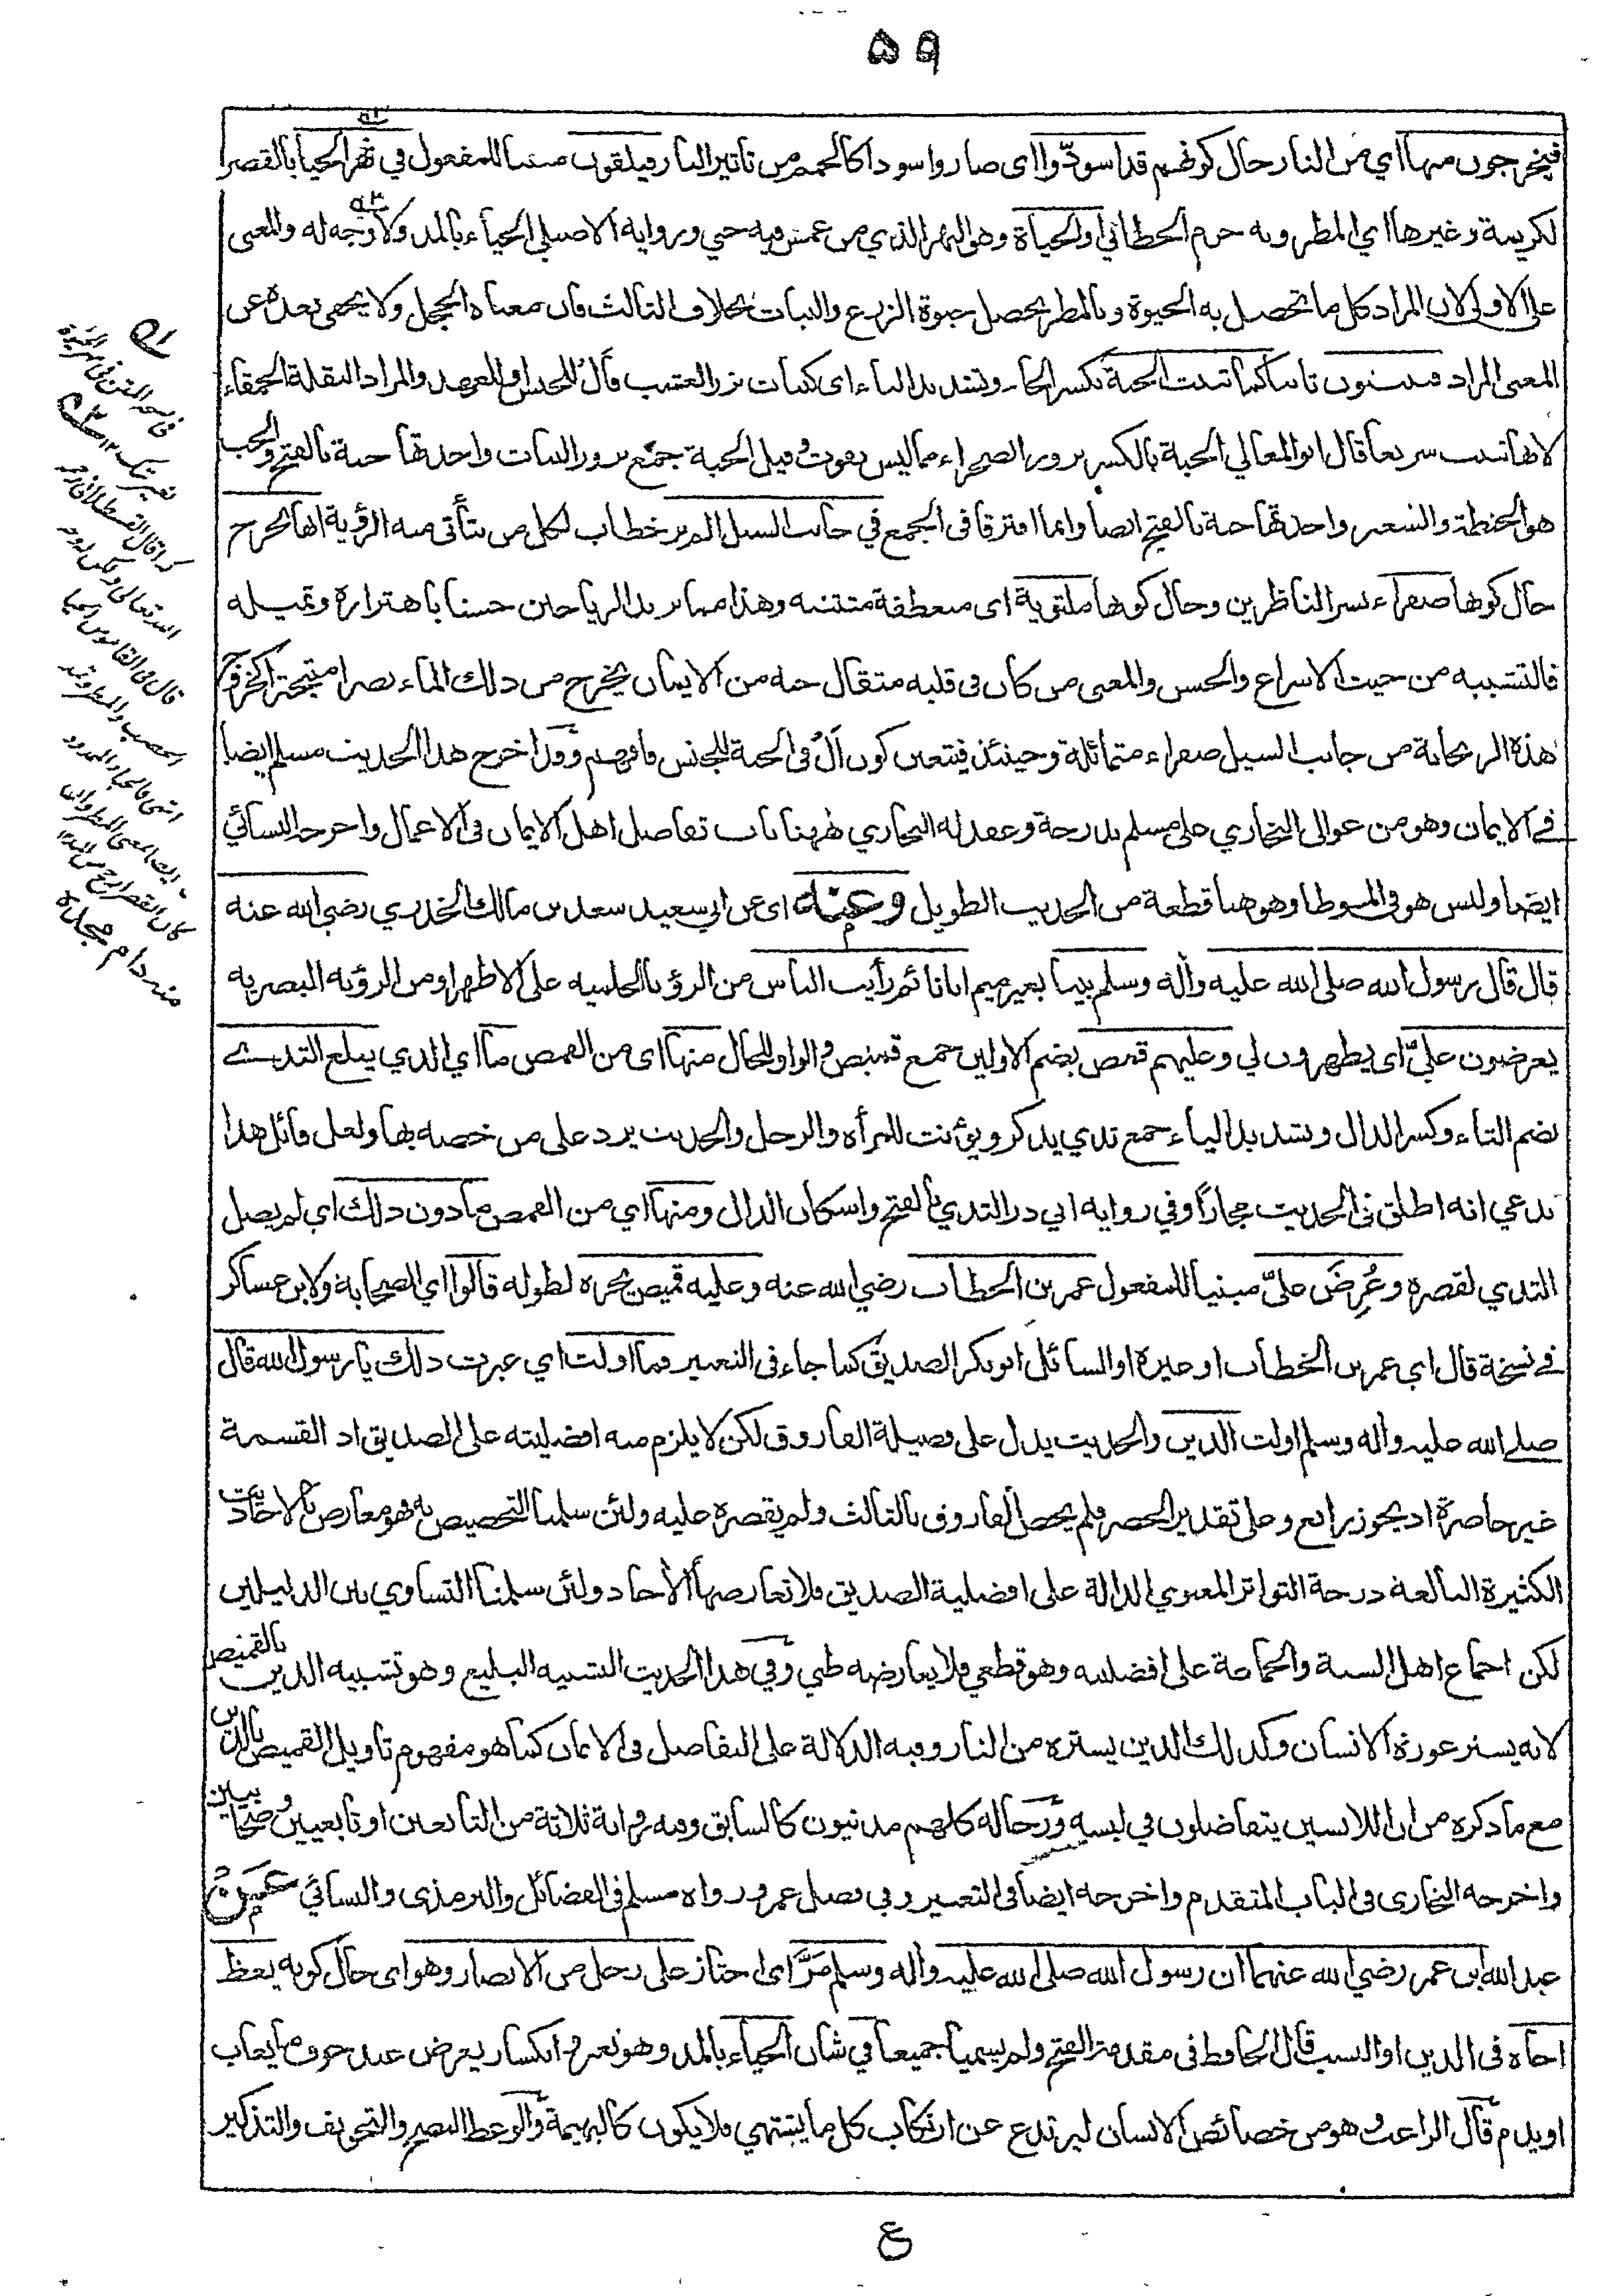 ٥٩
فيخرجون منها اي من النار حال كونهم قد اسودّوا اى صاروا سودا كالحمم من تاثير النار فيلقون مبنيا للمفعول في نهر الحيا بالقصر
لكريمة وغيرها اي المطر وبه جزم الخطابي او الحياة وهو النهر الذي من غمس فيه حيي ورواية الاصيلي الحياء بالمد ولا وجه له والمعنى
على الاولى لان المراد كل ما تحصل به الحيوة وبالمطر يحصل حيوة الزرع والنبات بخلاف الثالث فان معناه الخجل ولا يخفى بعده عن
المعنى المراد فينبتون ثانيا كما تنبت الحبة بكسر الحاء وتشديد الباء اى كنبات بزر العشب فأل للجنس او للعهد والمراد البقلة الحمقاء
لانها تنبت سريعا قال ابو المعالي الحبة بالكسر بزور الصحراء مما ليس بقوت وقيل الحبة جمع بزور النبات واحدتها حبة بالفتح والحب
هو الحنطة والشعير واحدتها حبة بالفتح ايضا وانما افترقا في الجمع في جانب السيل الم تر خطاب لكل من يتأتى منه الرؤية انها تخرج
حال كونها صفراء تسر الناظرين وحال كونها ملتوية اى منعطفة منثنية وهذا مما يزيد الرياحين حسنا باهتزازه وتميله
فالتشبيه من حيث الاسراع والحسن والمعنى من كان في قلبه مثقال حبة من الايمان يخرج من ذلك الماء نضرا متبخترا كخروج
هذه الريحانة من جانب السيل صفراء متمائلة وحينئذ فيتعين كون أل في الحبة للجنس فافهم وقد اخرج هذا الحديث مسلم ايضا
في الايمان وهو من عوالي البخاري على مسلم بدرجة وعقد له البخاري ههنا باب تفاضل اهل الايمان في الاعمال واخرجه النسائي
ايضا وليس هو في الموطا وهو هنا قطعة من الحديث الطويل وعنه اى عن ابي سعيد سعد بن مالك الخدري رضي الله عنه
قال قال رسول الله صلى الله عليه وآله وسلم بينا بغير ميم انا نائم رأيت الناس من الرؤيا الحلمية على الاظهر او من الرؤية البصرية
يعرضون عليّ اى يظهرون لي وعليهم قمص بضم الاولين جمع قميص والواو للحال منها اى من القمص ما اي الذي يبلغ الثدي
بضم الثاء وكسر الدال وتشديد الياء جمع ثدي يذكر ويؤنث للمرأة والرجل والحديث يرد على من خصه بها ولعل قائل هذا
يدعي انه اطلق في الحديث مجازا وفي رواية ابي ذر الثدي بالفتح واسكان الدال ومنها اي من القمص ما دون ذلك اي لم يصل
الثدي لقصره وعُرِضَ عليّ مبنيا للمفعول عمر بن الخطاب رضي الله عنه وعليه قميص يجره لطوله قالوا اي الصحابة ولابن عساكر
في نسخة قال اي عمر بن الخطاب او غيره او السائل ابو بكر الصديق كما جاء في التعبير فما اولت اي عبرت ذلك يا رسول الله قال
صلى الله عليه وآله وسلم اولت الدين والحديث يدل على فضيلة الفاروق لكن لا يلزم منه افضليته على الصديق اذ القسمة
غير حاصرة اذ يجوز رابع وعلى تقدير الحصر فلم يخص الفاروق بالثالث ولم يقصره عليه ولئن سلمنا التخصيص به فهو معارض بالاحاديث
الكثيرة البالغة درجة التواتر المعنوي الدالة على افضلية الصديق فلا تعارضها الآحاد ولئن سلمنا التساوي بين الدليلين
لكن اجماع اهل السنة والجماعة على افضليته وهو قطعي فلا يعارضه ظني وفي هذا الحديث التشبيه البليغ وهو تشبيه الدين بالقميص
لانه يستر عورة الانسان وكذلك الدين يستره من النار وفيه الدلالة على التفاضل في الايمان كما هو مفهوم تاويل القميص بالدين
مع ما ذكره من ان اللابسين يتفاضلون في لبسه ورجاله كلهم مدنيون كالسابق وفيه رواية ثلاثة من التابعين او تابعيين وصحابيين
واخرجه البخاري في الباب المتقدم واخرجه ايضا في التعبير وفي فضل عمر ورواه مسلم في الفضائل والترمذي والنسائي عن
عبد الله بن عمر رضي الله عنهما ان رسول الله صلى الله عليه وآله وسلم مَرَّ اى اجتاز على رجل من الانصار وهو اى حال كونه يعظ
اخاه في الدين او النسب قال الحافظ في مقدمة الفتح ولم يسميا جميعا في شان الحياء بالمد وهو تغير وانكسار يعرض عند خوف ما يعاب
او يذم قال الراغب وهو من خصائص الانسان ليرتدع عن ارتكاب كل ما يشتهي فلا يكون كالبهيمة والوعظ النصح والتخويف والتذكير
ع
كذا قال القسطلاني رحمه
الله تعالى ولكن لوجه
قال في القاموس الحيا
الخصب والمطر ويمد
انتهى فالحياء الممدود